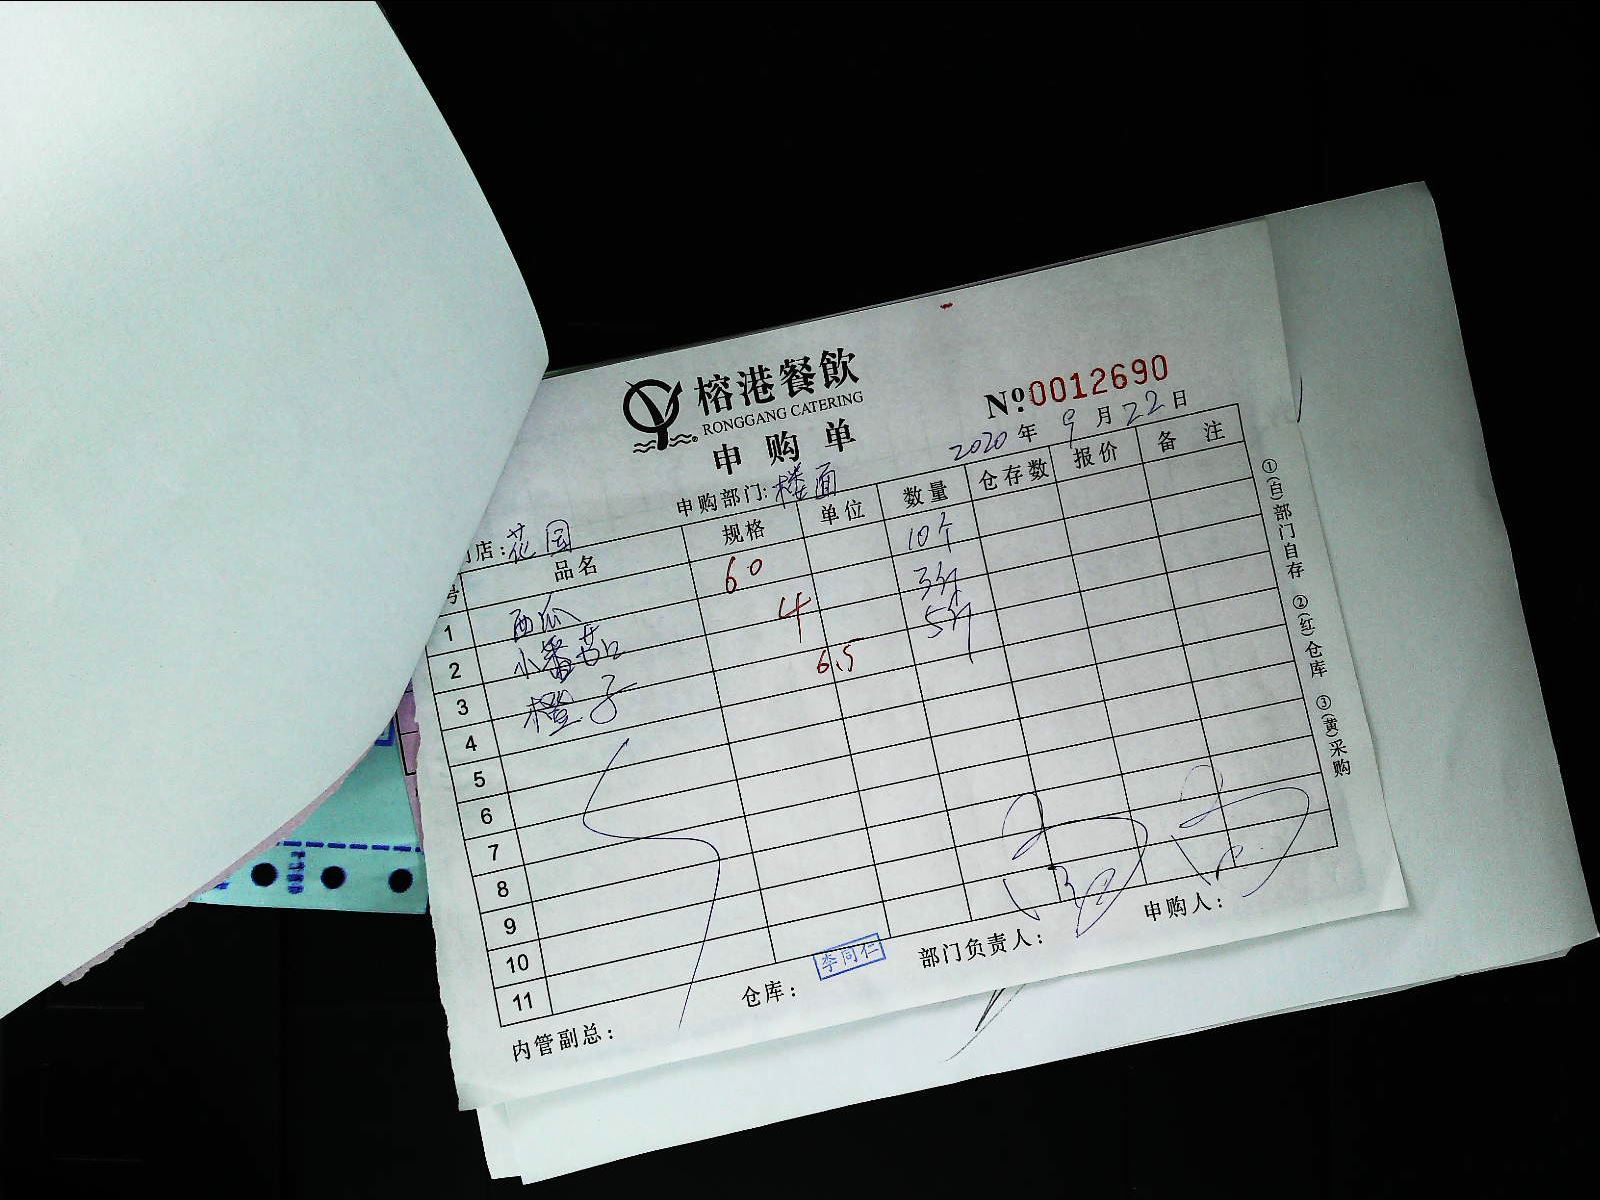 榕港餐飲
RONGGANG CATERING
申购单
№0012690
2020年9月22日
申购部门:楼面
店:花园
号 品名 规格 单位 数量 仓存数 报价 备注
1 西瓜 60 10个
2 小番茄 4 3斤
3 橙子 6.5 5斤
4
5
6
7
8
9
10
11
①(白)部门自存 ②(红)仓库 ③(黄)采购
内管副总: 仓库: 李同仁 部门负责人: 申购人: